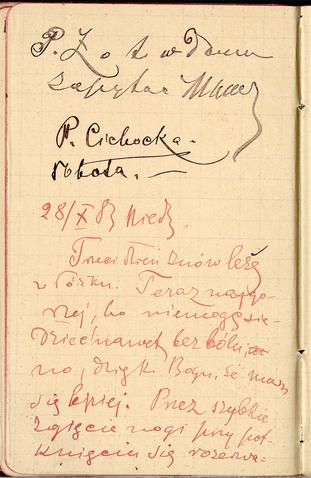 P. Z o t w Domu
zapytać
P. Cichocka.
Robota. —
28/X Niedz.
Trzeci dzień znów leżę
w łóżku. Teraz najgo-
rzej, bo nie mogę sie-
dzieć nawet bez bólu,
no, dzięki Bogu, że mam
się lepiej. Przez szybkie
zgięcie nogi przy pot-
knięciu się rozerwa-